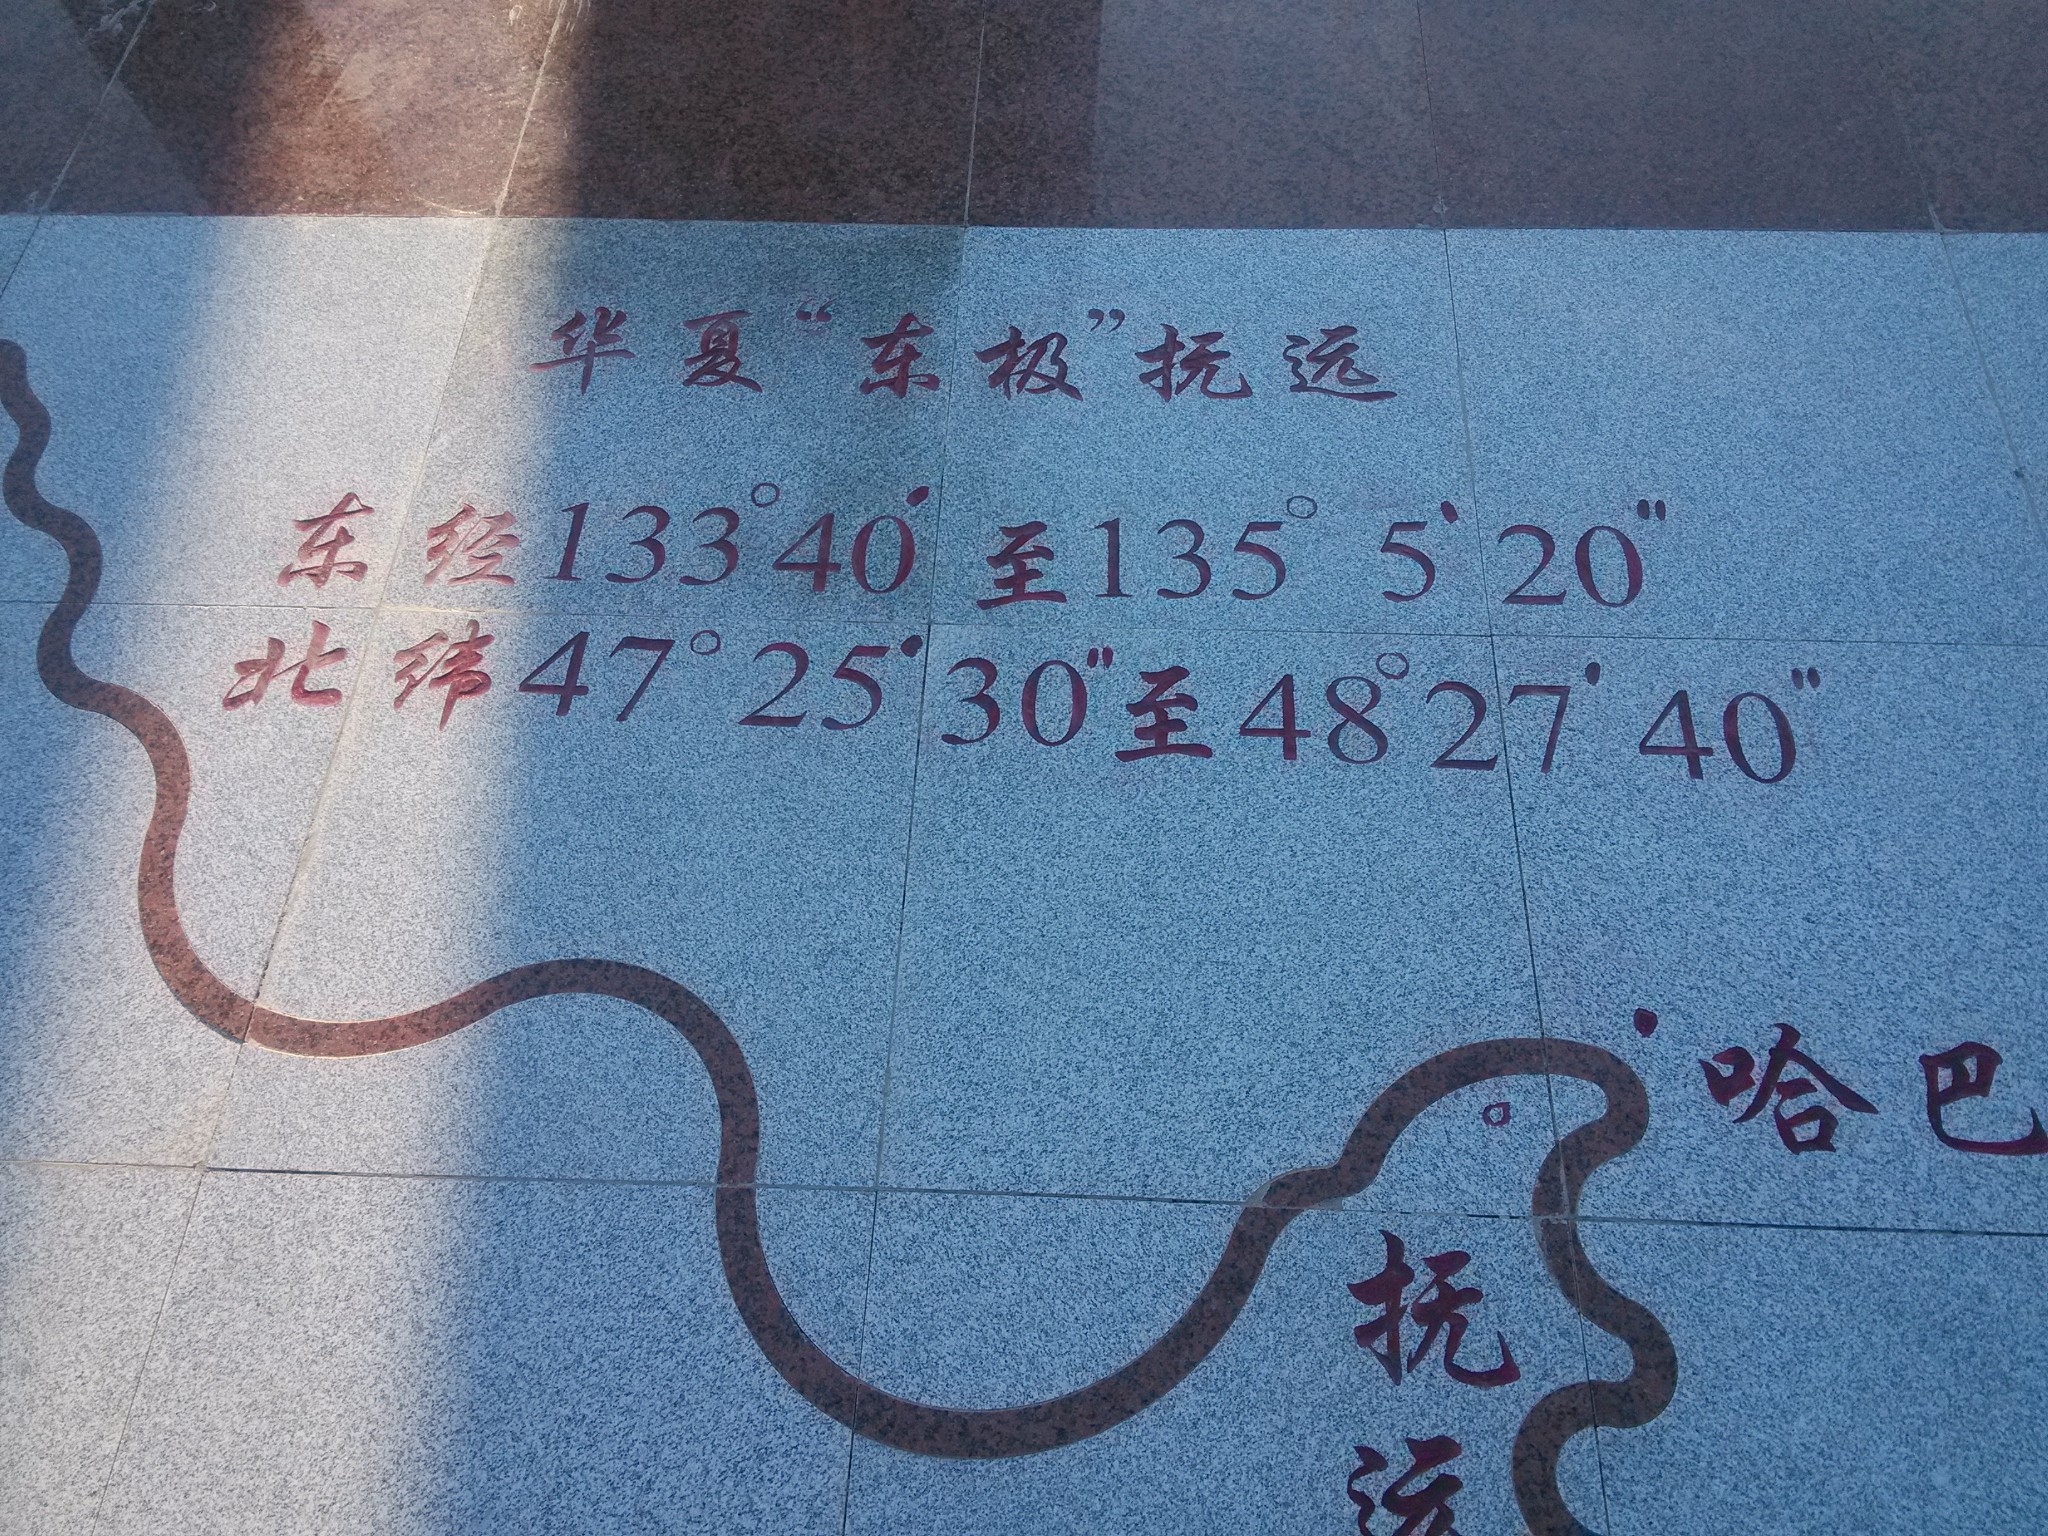 华夏“东极”抚远
东经133°40′至135°5′20″
北纬47°25′30″至48°27′40″
哈巴
抚远